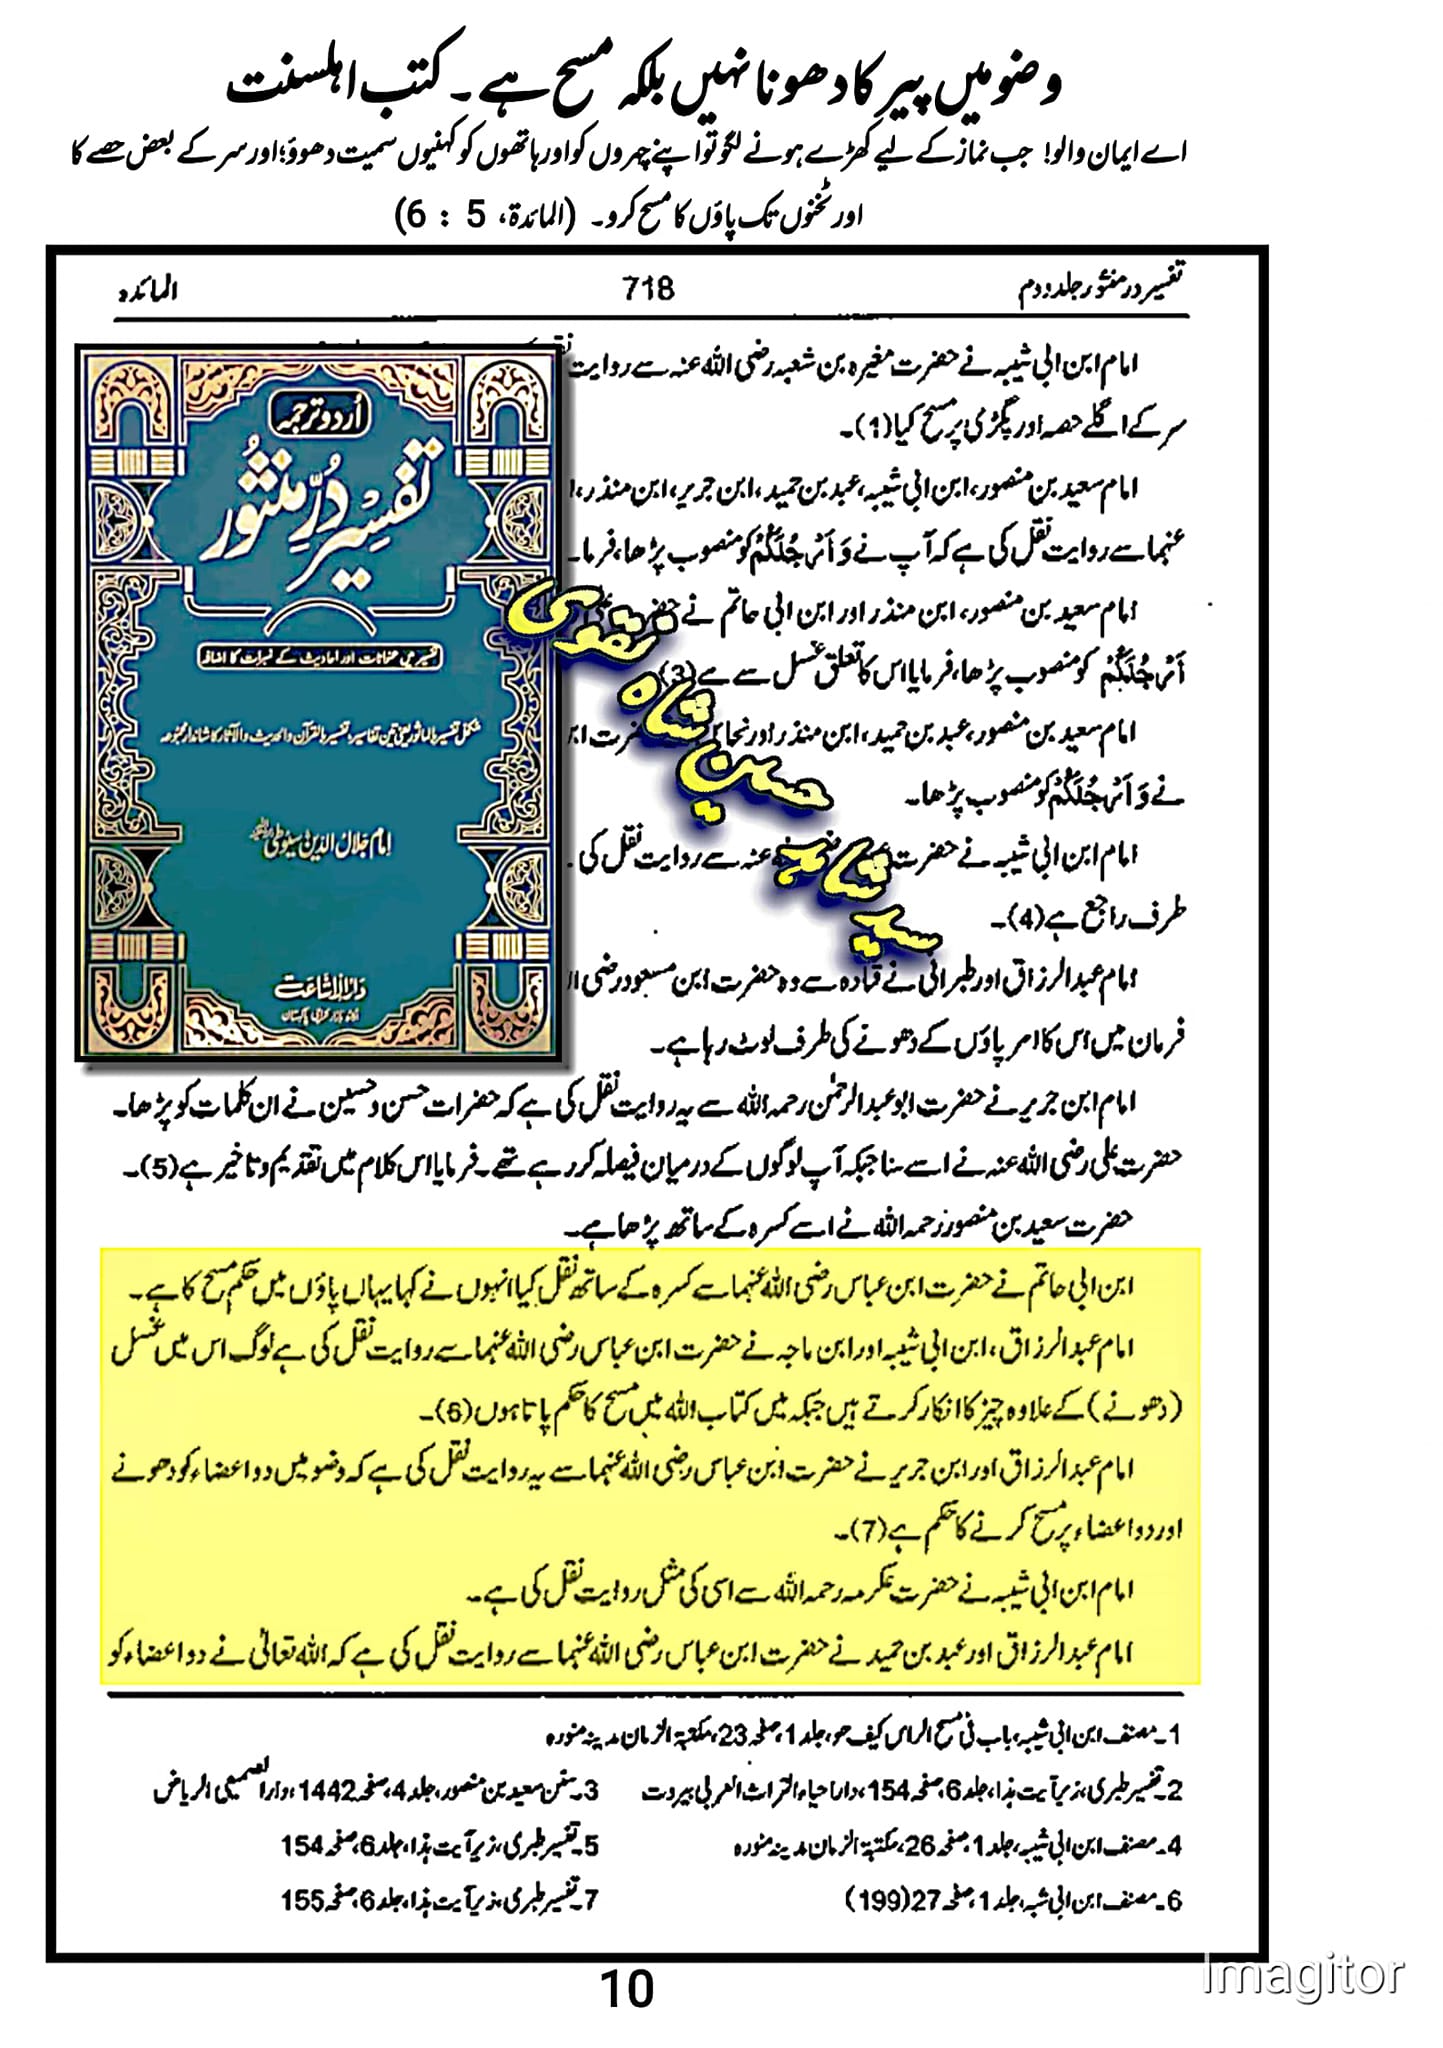 وضو میں پیر کا دھونا نہیں بلکہ مسح ہے ۔ کتب اہلسنت
اے ایمان والو! جب نماز کے لیے کھڑے ہونے لگو تو اپنے چہروں کو اور ہاتھوں کو کہنیوں سمیت دھوؤ؛ اور سر کے بعض حصے کا
اور ٹخنوں تک پاؤں کا مسح کرو۔ (المائدۃ، 5 : 6)
تفسیر در منثور جلد دوم
718
المائدہ
امام ابن ابی شیبہ نے حضرت مغیرہ بن شعبہ رضی اللہ عنہ سے روایت
سر کے اگلے حصہ اور پگڑی پر مسح کیا(1)۔
امام سعید بن منصور، ابن ابی شیبہ، عبد بن حمید، ابن جریر، ابن منذر،
عنہما سے روایت نقل کی ہے کہ آپ نے وَ اَرْجُلَكُمْ کو منصوب پڑھا، فرما
امام سعید بن منصور، ابن منذر اور ابن ابی حاتم نے
اَرْجُلَكُمْ کو منصوب پڑھا، فرمایا اس کا تعلق غسل سے ہے(3)
امام سعید بن منصور، عبد بن حمید، ابن منذر اور
نے وَ اَرْجُلَكُمْ کو منصوب پڑھا۔
امام ابن ابی شیبہ نے حضرت عنہ سے روایت نقل کی
طرف راجع ہے(4)۔
امام عبد الرزاق اور طبرانی نے قتادہ سے وہ حضرت ابن مسعود رضی
فرمان میں اس کا امر پاؤں کے دھونے کی طرف لوٹ رہا ہے۔
امام ابن جریر نے حضرت ابو عبد الرحمٰن رحمہ اللہ سے یہ روایت نقل کی ہے کہ حضرات حسن و حسین نے ان کلمات کو پڑھا۔
حضرت علی رضی اللہ عنہ نے اسے سنا جبکہ آپ لوگوں کے درمیان فیصلہ کر رہے تھے۔ فرمایا اس کلام میں تقدیم و تاخیر ہے(5)۔
حضرت سعید بن منصور رحمہ اللہ نے اسے کسرہ کے ساتھ پڑھا ہے۔
ابن ابی حاتم نے حضرت ابن عباس رضی اللہ عنہما سے کسرہ کے ساتھ نقل کیا انہوں نے کہا یہاں پاؤں میں حکم مسح کا ہے۔
امام عبد الرزاق، ابن ابی شیبہ اور ابن ماجہ نے حضرت ابن عباس رضی اللہ عنہما سے روایت نقل کی ہے لوگ اس میں غسل
(دھونے) کے علاوہ چیز کا انکار کرتے ہیں جبکہ میں کتاب اللہ میں مسح کا حکم پاتا ہوں(6)۔
امام عبد الرزاق اور ابن جریر نے حضرت ابن عباس رضی اللہ عنہما سے یہ روایت نقل کی ہے کہ وضو میں دو اعضاء کو دھونے
اور دو اعضاء پر مسح کرنے کا حکم ہے(7)۔
امام ابن ابی شیبہ نے حضرت عکرمہ رحمہ اللہ سے اسی کی مثل روایت نقل کی ہے۔
امام عبد الرزاق اور عبد بن حمید نے حضرت ابن عباس رضی اللہ عنہما سے روایت نقل کی ہے کہ اللہ تعالیٰ نے دو اعضاء کو
1۔ مصنف ابن ابی شیبہ، باب فی مسح الراس کیف ھو، جلد 1، صفحہ 23، مکتبۃ الزمان مدینہ منورہ
2۔ تفسیر طبری، زیر آیت ہذا، جلد 6، صفحہ 154، دار احیاء التراث العربی بیروت
3۔ سنن سعید بن منصور، جلد 4، صفحہ 1442، دار الصمیعی الریاض
4۔ مصنف ابن ابی شیبہ، جلد 1، صفحہ 26، مکتبۃ الزمان مدینہ منورہ
5۔ تفسیر طبری، زیر آیت ہذا، جلد 6، صفحہ 154
6۔ مصنف ابن ابی شیبہ، جلد 1، صفحہ 27 (199)
7۔ تفسیر طبری، زیر آیت ہذا، جلد 6، صفحہ 155
اُردو ترجمہ
تفسیر دُرِّ منثور
تفسیر میں عنوانات اور احادیث کے نمبرات کا اضافہ
مکمل تفسیر بالماثور یعنی تین تفاسیر، تفسیر بالقرآن والحدیث والآثار کا شاندار مجموعہ
امام جلال الدین سیوطی
دار الاشاعت
اردو بازار کراچی پاکستان
سید شاہد حسین شاہ نقوی
10
Imagitor